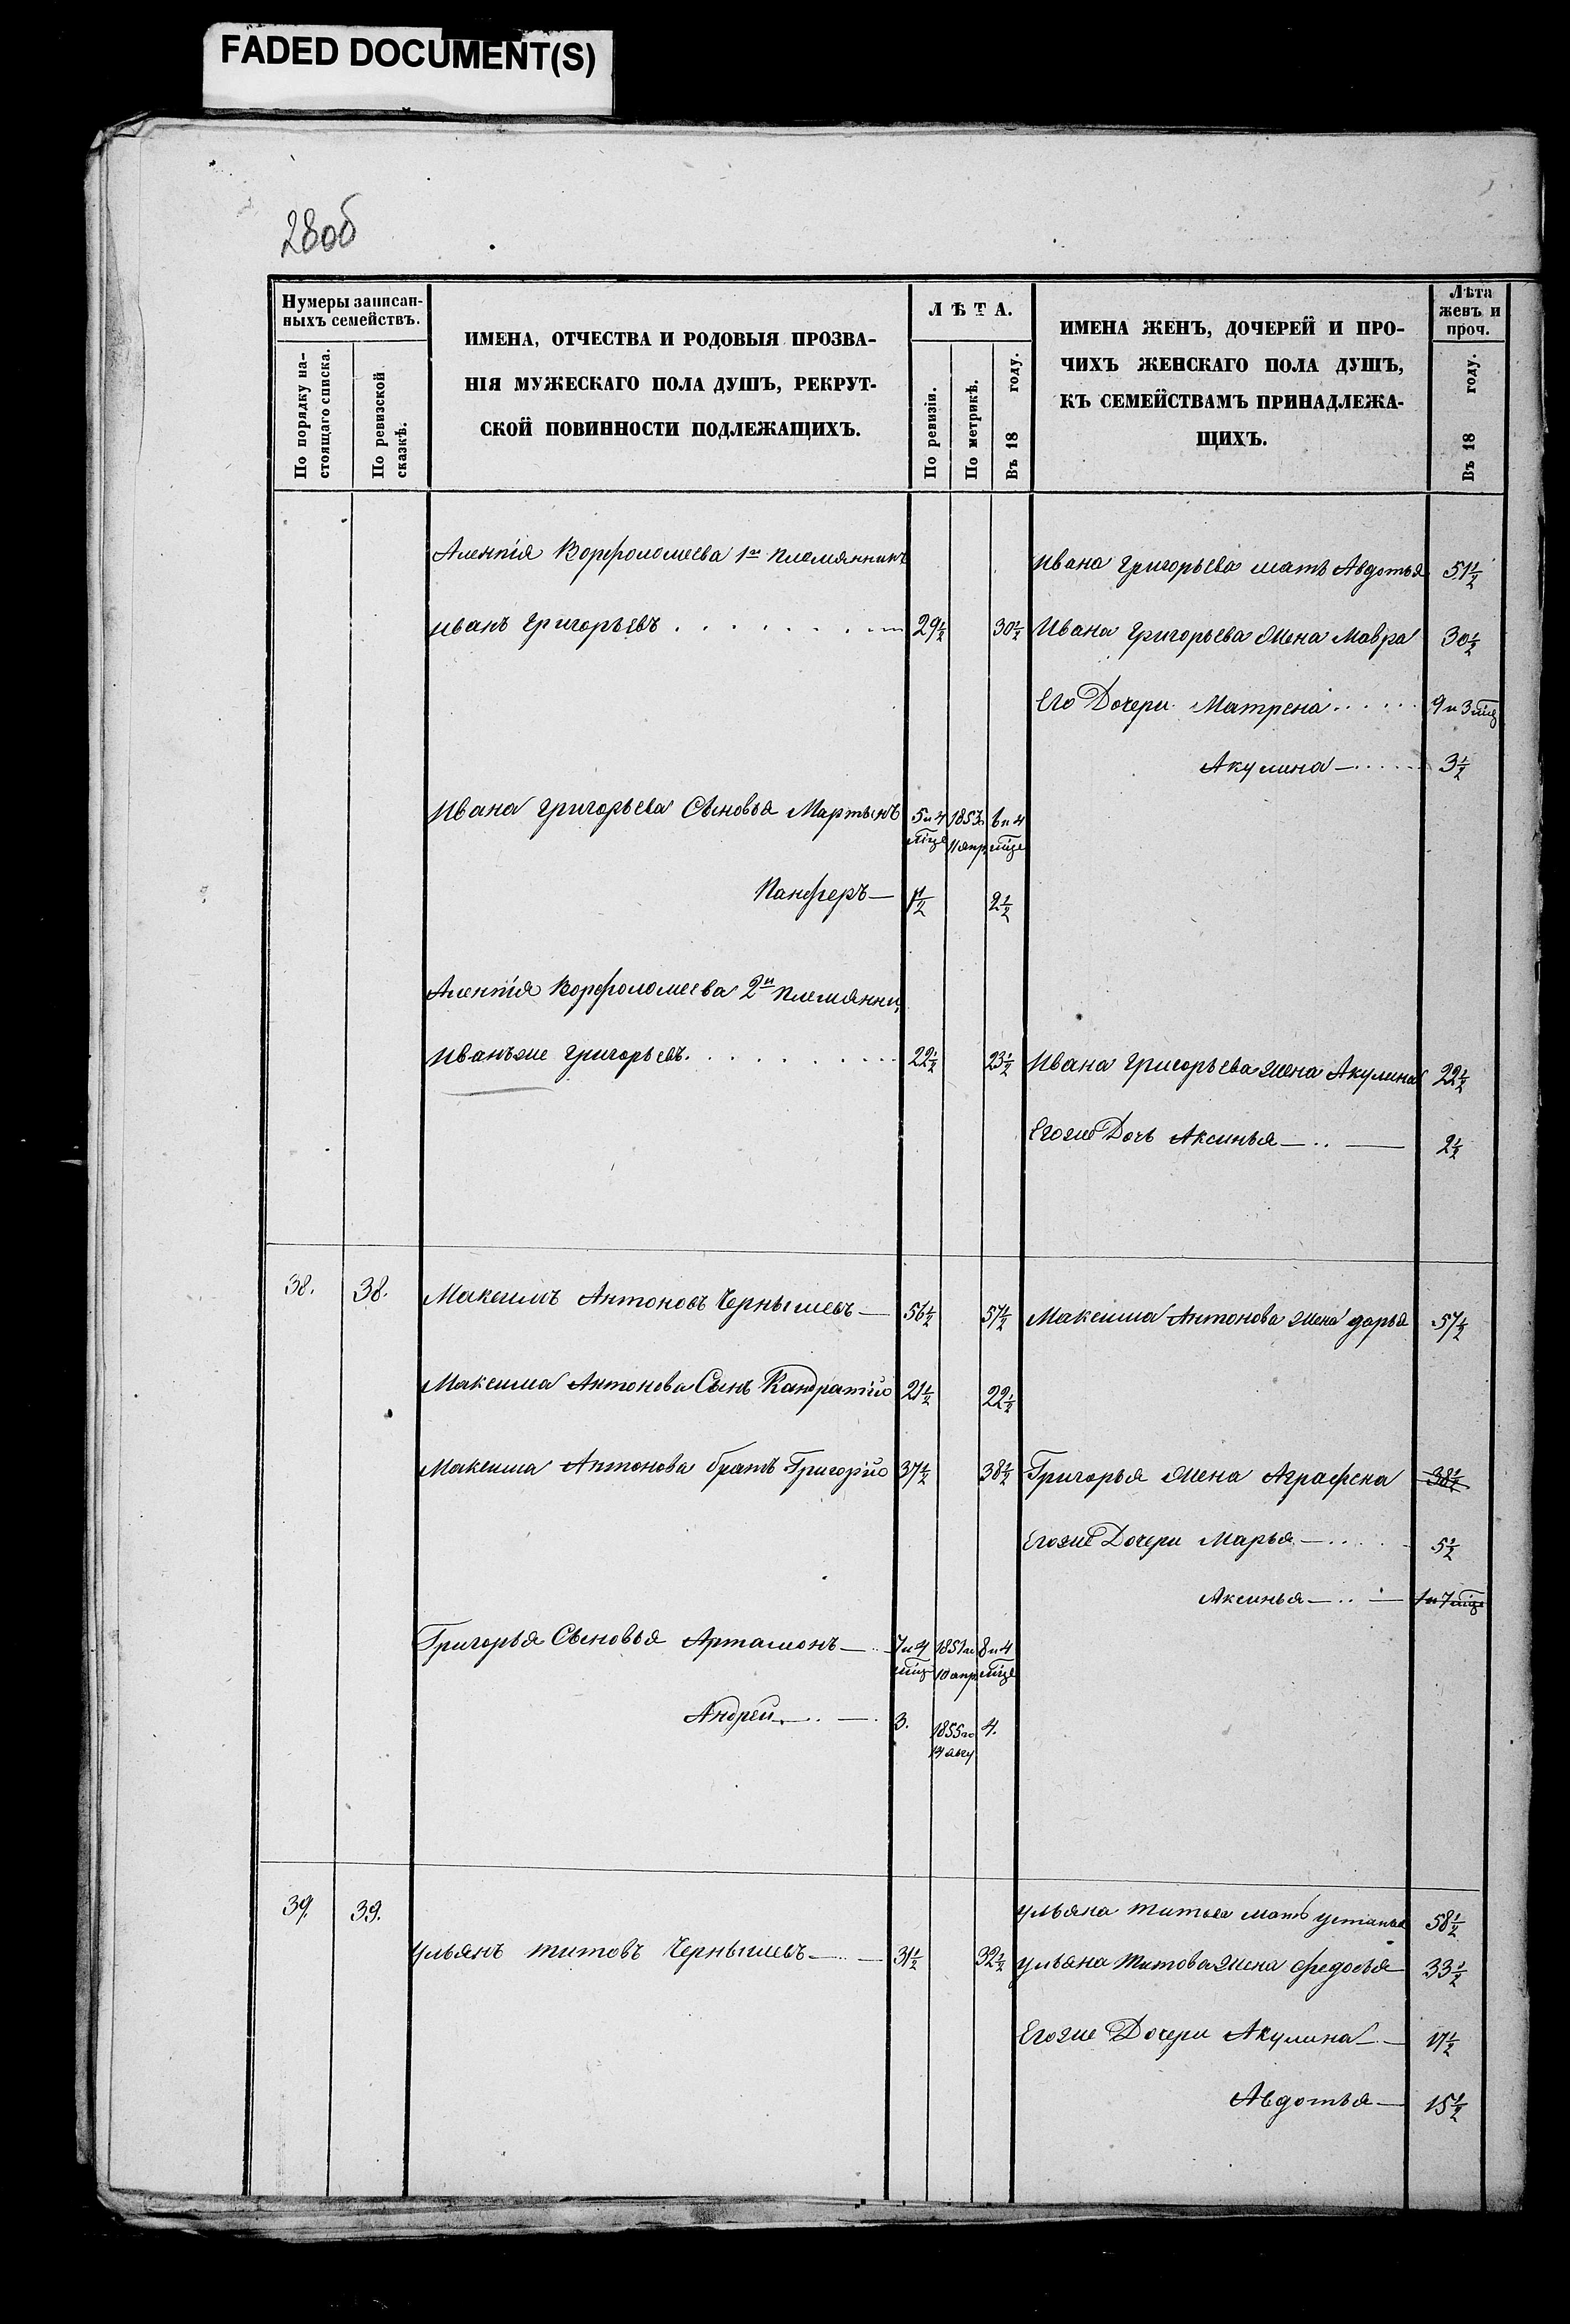 FADED DOCUMENT(S)
28об
Нумеры записан-
ныхъ семействъ.
По порядку на-
стоящаго списка.
По ревизской
сказкѣ.
ИМЕНА, ОТЧЕСТВА И РОДОВЫЯ ПРОЗВА-
НІЯ МУЖЕСКАГО ПОЛА ДУШЪ, РЕКРУТ-
СКОЙ ПОВИННОСТИ ПОДЛЕЖАЩИХЪ.
Л Ѣ Т А.
По ревизіи.
По метрикѣ.
Въ 18 году.
ИМЕНА ЖЕНЪ, ДОЧЕРЕЙ И ПРО-
ЧИХЪ ЖЕНСКАГО ПОЛА ДУШЪ,
КЪ СЕМЕЙСТВАМЪ ПРИНАДЛЕЖА-
ЩИХЪ.
Лѣта
женъ и
проч.
Въ 18 году.
Алентія Ворфоломеева 1й племянникъ
Ивана Григорьева мать Авдотья 51½
Иванъ Григорьевъ 29½ 30½ Ивана Григорьева жена Мавра 30½
Его Дочери Матрена 9 и 3 мѣц
Акулина 3½
Ивана Григорьева Сыновья Мартынъ 5 и 4 мѣце 1853го 11 апр 6 и 4 мѣце
Панферъ 1½ 2½
Алентія Ворфоломеева 2й племянни
Иванъже Григорьевъ 22½ 23½ Ивана Григорьева жена Акулина 22½
Егоже Дочь Аксинья 2½
38. 38. Максимъ Антоновъ Чернышевъ 56½ 57½ Максима Антонова жена дарья 57½
Максима Антонова Сынъ Кандратій 21½ 22½
Максима Антонова братъ Григорій 37½ 38½ Григорья жена Аграфена 38½
Егоже Дочери Марья 5½
Аксинья 1 и 7 мѣце
Григорья Сыновья Артамонъ 7 и 4 мѣце 1851го 10 апр 8 и 4 мѣце
Андрей 3. 1855го авгу 4.
39. 39. ульяна титова мать устинья 58½
ульянъ титовъ Чернышевъ 31½ 32½ ульяна титова жена федосья 33½
Егоже Дочери Акулина 17½
Авдотья 15½